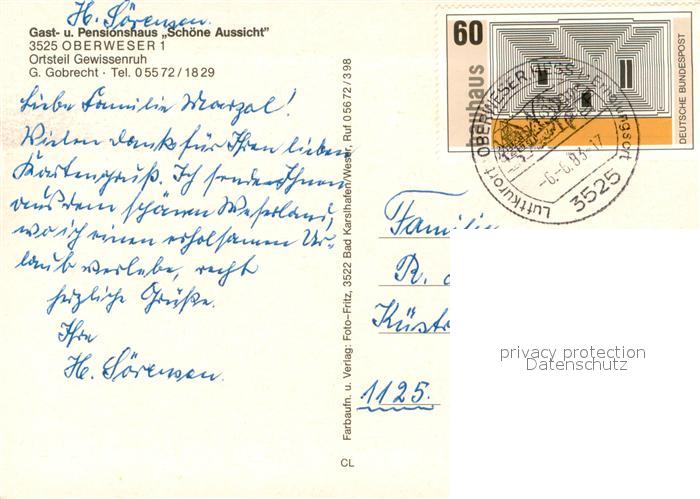 H. Sörensen
Gast- u. Pensionshaus „Schöne Aussicht"
3525 OBERWESER 1
Ortsteil Gewissenruh
G. Gobrecht · Tel. 0 55 72 / 18 29
Liebe Familie Marzal!
Vielen Dank für Ihren lieben
Kartengruß. Ich sende Ihnen
aus dem schönen Weserland,
wo ich einen erholsamen Ur-
laub verlebe, recht
herzliche Grüße.
Ihre
H. Sörensen.
Farbaufn. u. Verlag: Foto-Fritz, 3522 Bad Karlshafen/Weser, Ruf 0 56 72 / 3 98
CL
60
bauhaus
DEUTSCHE BUNDESPOST
Luftkurort OBERWESER
Erholungsort
-6.-6.83-17
3525
Familie
R.
Küst
1125.
privacy protection
Datenschutz